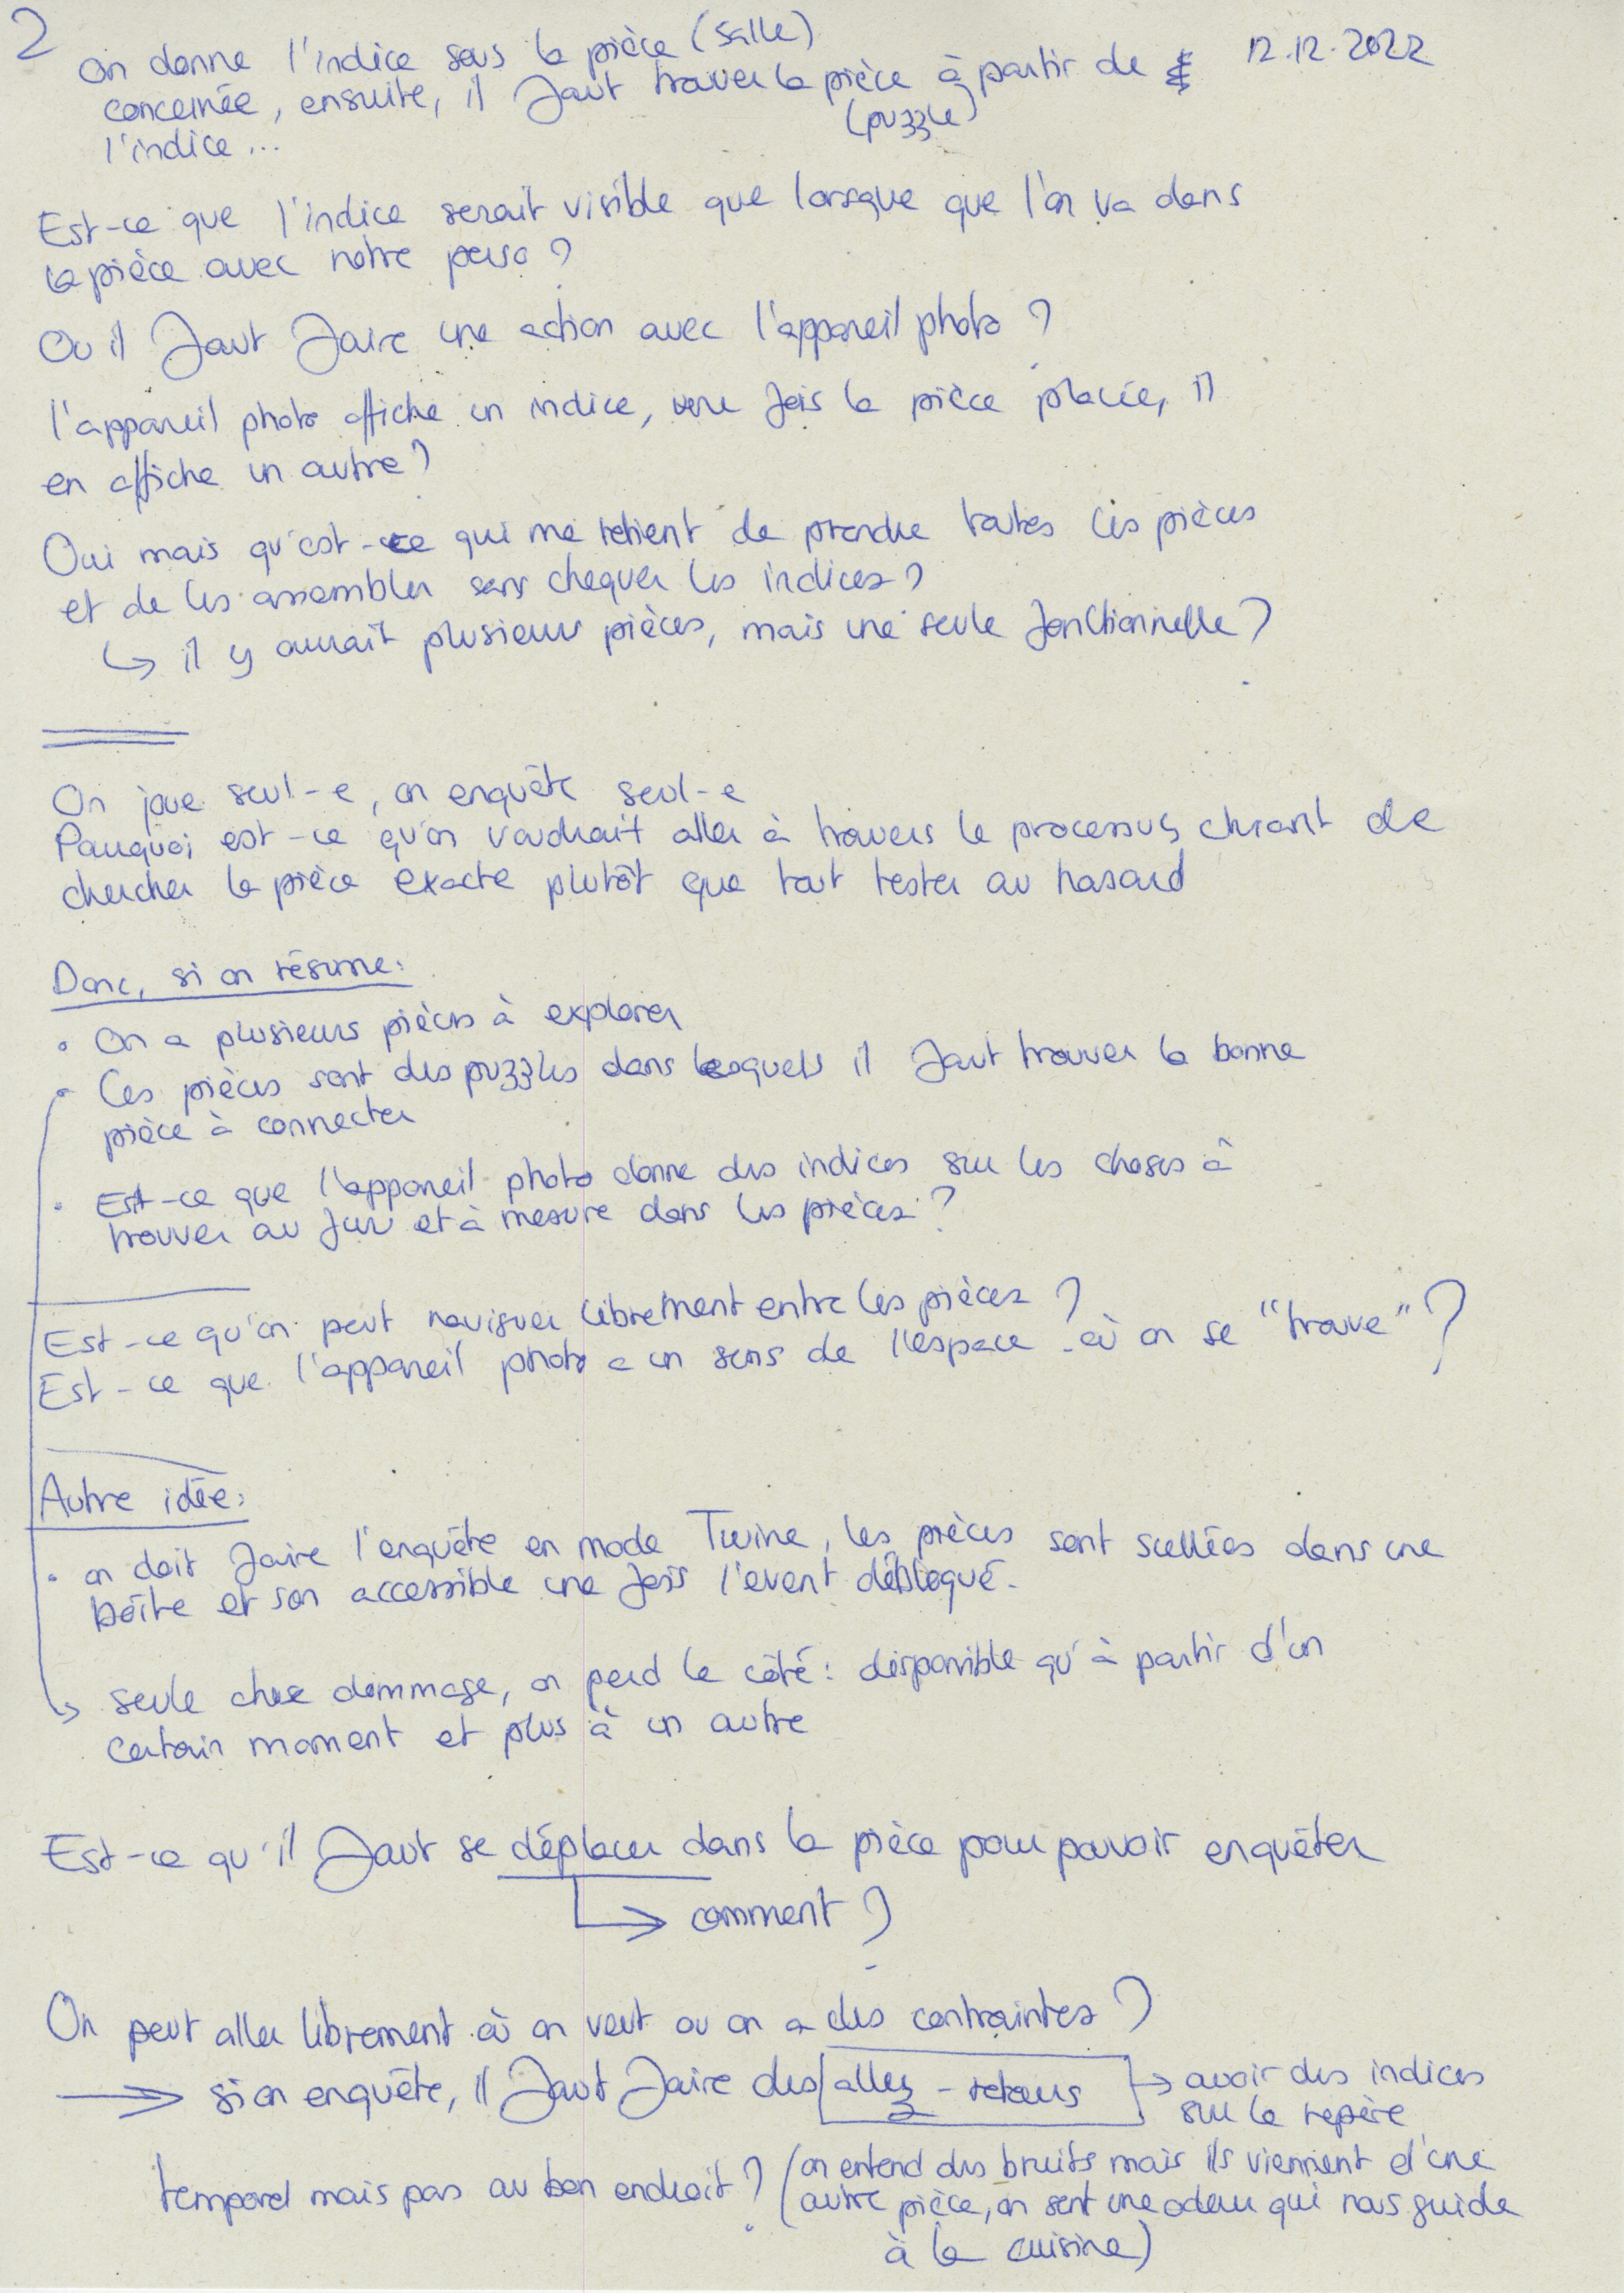 2
12.12.2022
On donne l'indice sous la pièce (salle)
concernée, ensuite, il faut trouver la pièce à partir de
(puzzle)
l'indice...
Est-ce que l'indice serait visible que lorsque que l'on va dans
la pièce avec notre perso ?
Ou il faut faire une action avec l'appareil photo ?
l'appareil photo affiche un indice, une fois la pièce placée, il
en affiche un autre ?
Oui mais qu'est-ce qui me retient de prendre toutes les pièces
et de les assembler sans chequer les indices ?
↳ il y aurait plusieurs pièces, mais une seule fonctionnelle ?
On joue seul-e, on enquête seul-e
Pourquoi est-ce qu'on voudrait aller à travers le processus chiant de
chercher la pièce exacte plutôt que tout tester au hasard
Donc, si on résume:
• On a plusieurs pièces à explorer
• Ces pièces sont des puzzles dans lesquels il faut trouver la bonne
pièce à connecter
• Est-ce que l'appareil photo donne des indices sur les choses à
trouver au fur et à mesure dans les pièces ?
Est-ce qu'on peut naviguer librement entre les pièces ?
Est-ce que l'appareil photo a un sens de l'espace où on se "trouve" ?
Autre idée:
• on doit faire l'enquête en mode Twine, les pièces sont scellées dans une
boîte et son accessible une fois l'event débloqué.
↳ seule chose dommage, on perd le côté: disponible qu'à partir d'un
certain moment et plus à un autre
Est-ce qu'il faut se déplacer dans la pièce pour pouvoir enquêter
→ comment ?
On peut aller librement où on veut ou on a des contraintes ?
→ si on enquête, il faut faire des allez-retours → avoir des indices
sur le repère
temporel mais pas au bon endroit ? (on entend des bruits mais ils viennent d'une
autre pièce, on sent une odeur qui nous guide
à la cuisine)